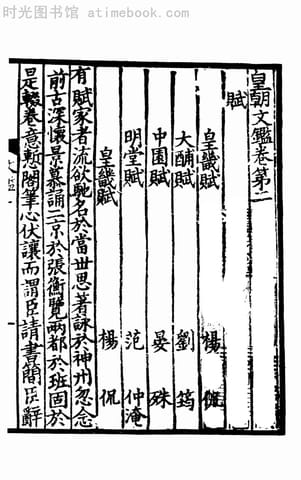 时光图书馆 atimebook.com
皇朝文鑑卷第二
賦
皇畿賦 楊侃
大酺賦 劉筠
中園賦 晏殊
明堂賦 范仲淹
皇畿賦 楊侃
有賦家者流欲馳名於當世思著詠於神州忽念
前古深懷景慕誦二京於張衡覽兩都於班固於
是輟卷意慙閣筆心伏讓而謂臣請書簡臣辭